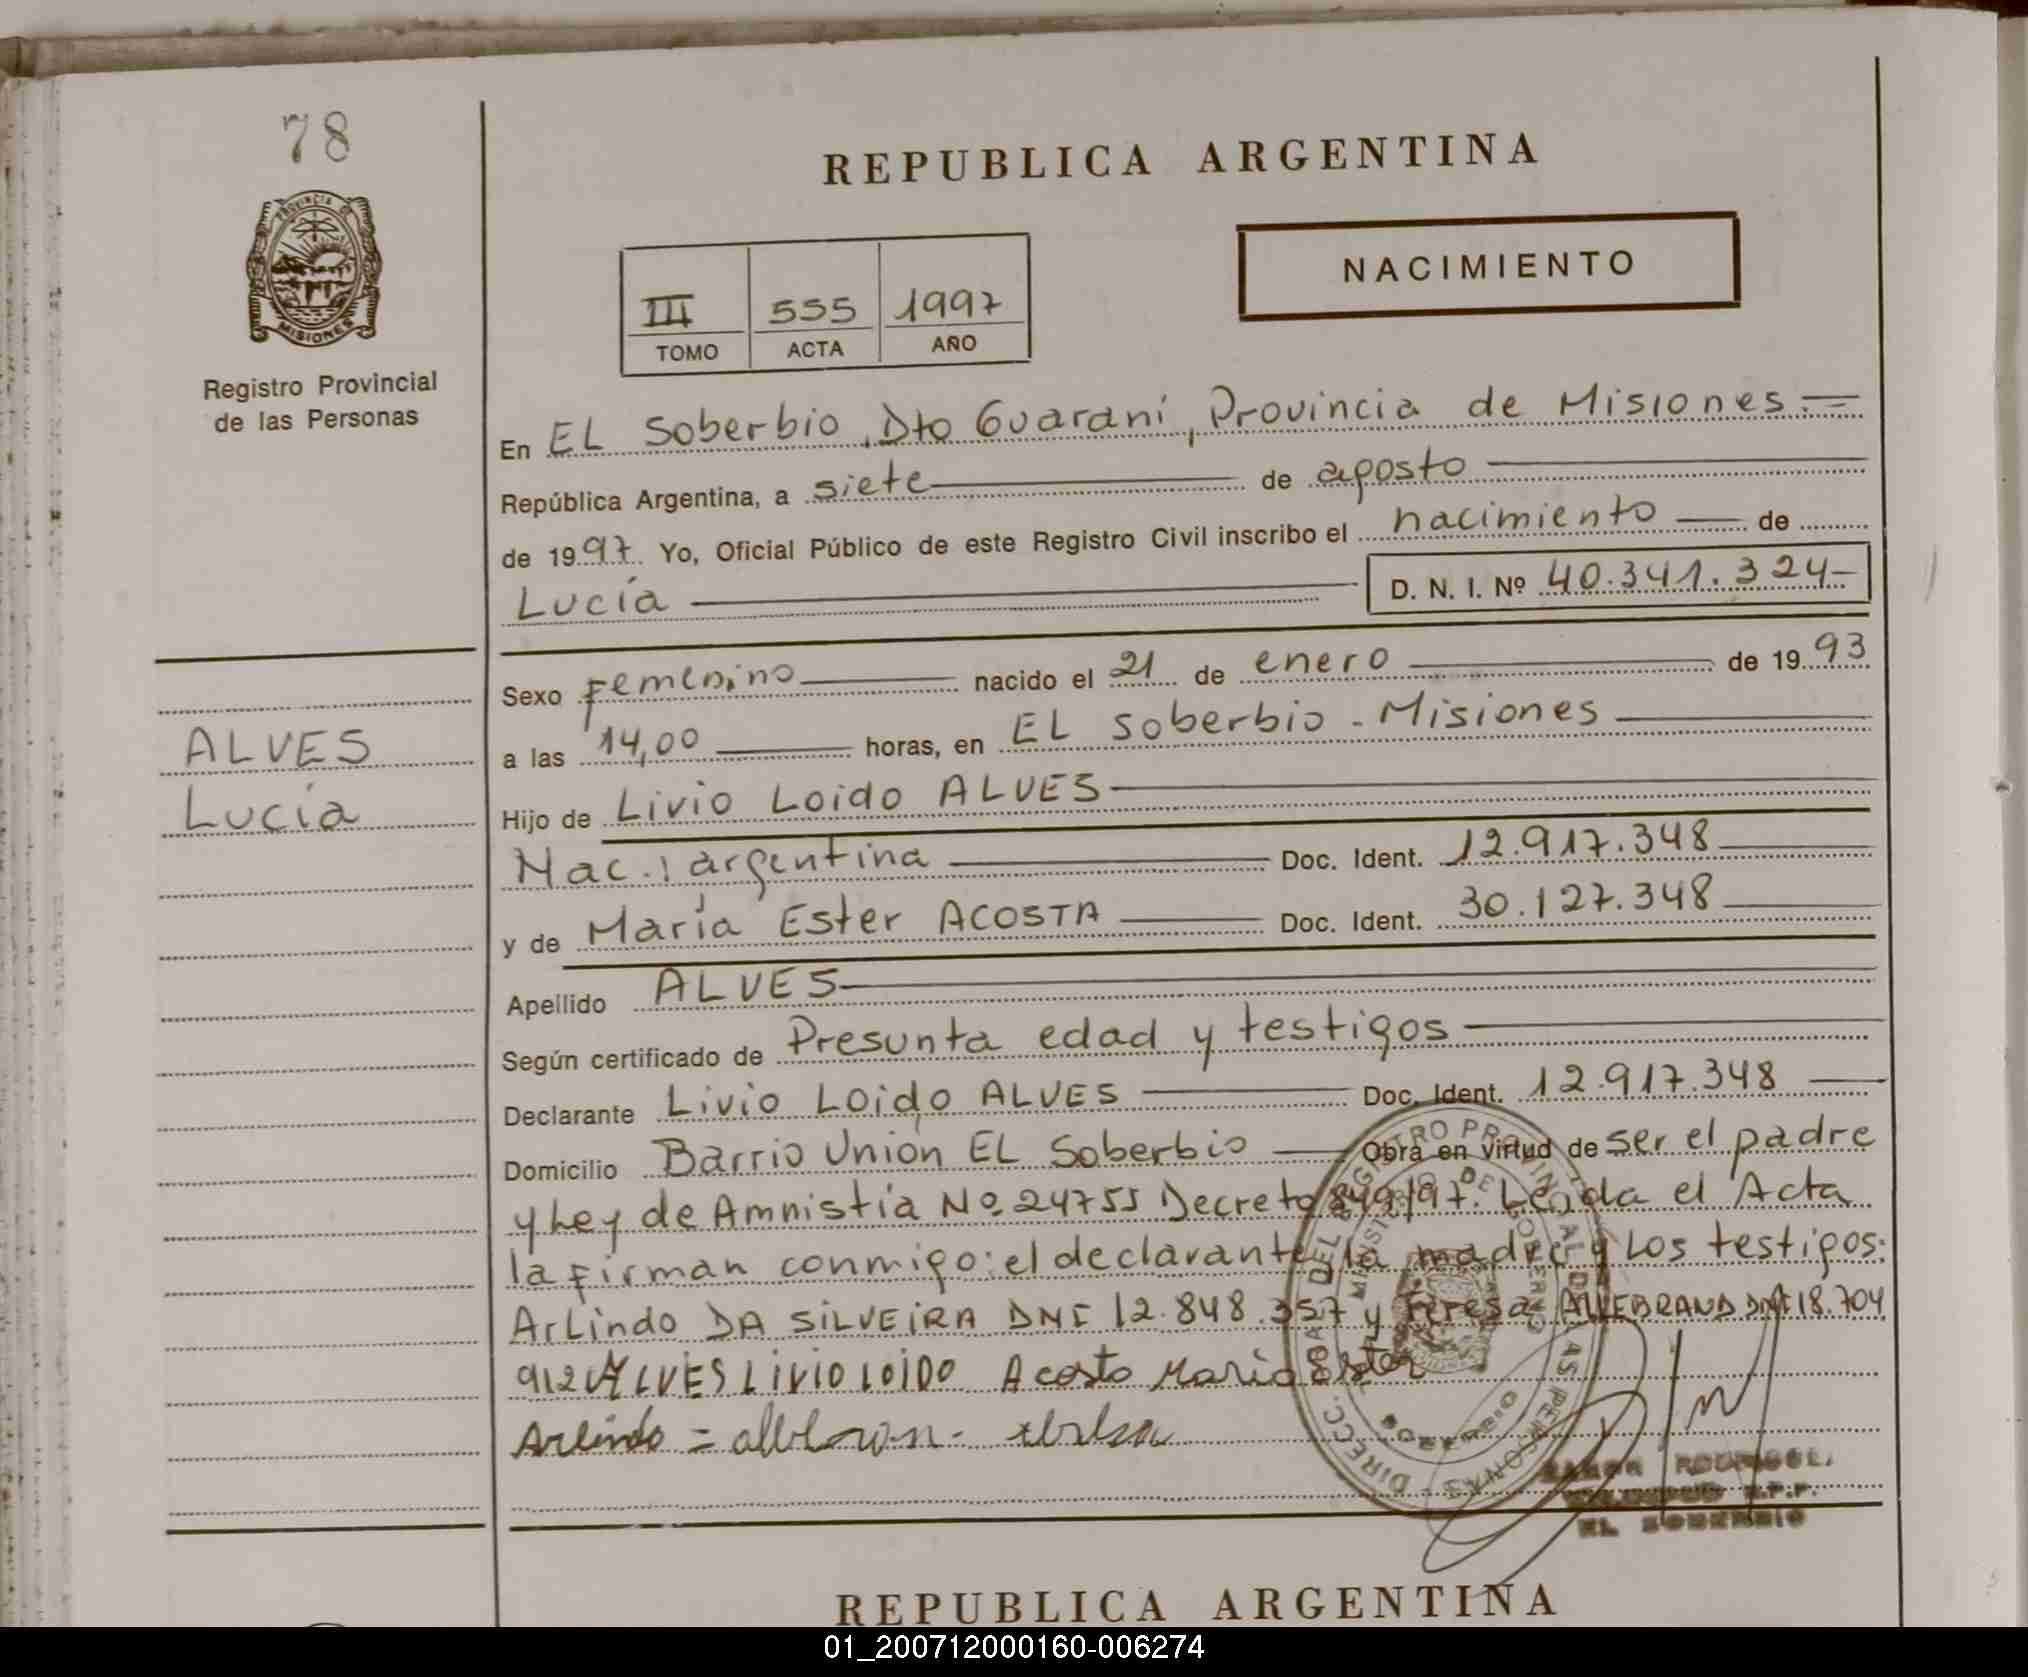 78
REPUBLICA ARGENTINA
PROVINCIA DE
MISIONES
Registro Provincial
de las Personas
III 555 1997
TOMO ACTA AÑO
NACIMIENTO
En EL Soberbio, Dto Guaraní, Provincia de Misiones.=
República Argentina, a siete de agosto
de 1997 Yo, Oficial Público de este Registro Civil inscribo el nacimiento de
Lucía D. N. I. Nº 40.341.324-
Sexo Femenino nacido el 21 de enero de 1993
a las 14,00 horas, en EL Soberbio - Misiones
ALVES
Lucía
Hijo de Livio Loido ALVES
Nac.: argentina Doc. Ident. 12.917.348
y de María Ester ACOSTA Doc. Ident. 30.127.348
Apellido ALVES
Según certificado de Presunta edad y testigos
Declarante Livio Loido ALVES Doc. Ident. 12.917.348
Domicilio Barrio Unión EL Soberbio Obra en virtud de ser el padre
y Ley de Amnistía Nº 24755 Decreto 849/97. Leída el Acta
la firman conmigo: el declarante, la madre y Los testigos:
Arlindo DA SILVEIRA DNI 12.848.357 y Teresa ALLEBRAND DNI 18.704.
912 ALVES LIVIO LOIDO Acosta Maria Ester
Arlindo =
DIRECC. GRAL DEL REGISTRO PROVINCIAL DE LAS PERSONAS
MINISTERIO DE GOBIERNO
EL SOBERBIO
REPUBLICA ARGENTINA
01_200712000160-006274